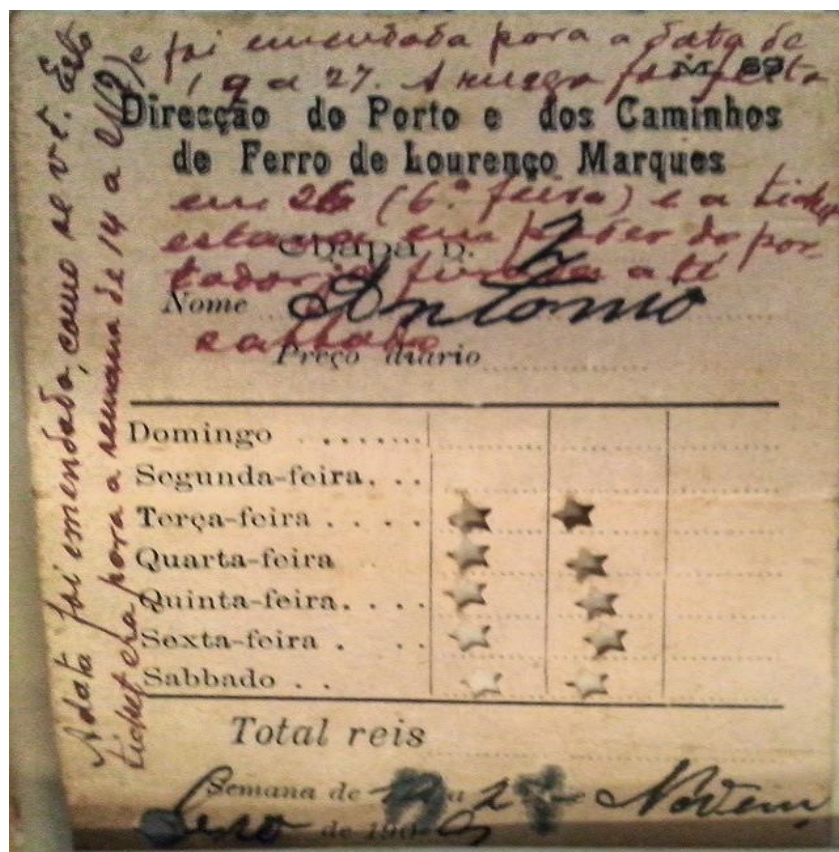 A data foi emendada, como se vê. Este
ticket era para a semana de 14 a
e foi emendada para a data de
19 a 27. A rusga foi feita
M. 89
Direcção do Porto e dos Caminhos
de Ferro de Lourenço Marques
em 26 (6.ª feira) e a ticket
estava em poder do por-
tador já furada até
sabbado
Chapa n. 2
Nome Antonio
Preço diário
Domingo
Segunda-feira
Terça-feira
Quarta-feira
Quinta-feira
Sexta-feira
Sabbado
Total reis
Semana de a 27 de Novem
bro de 1909